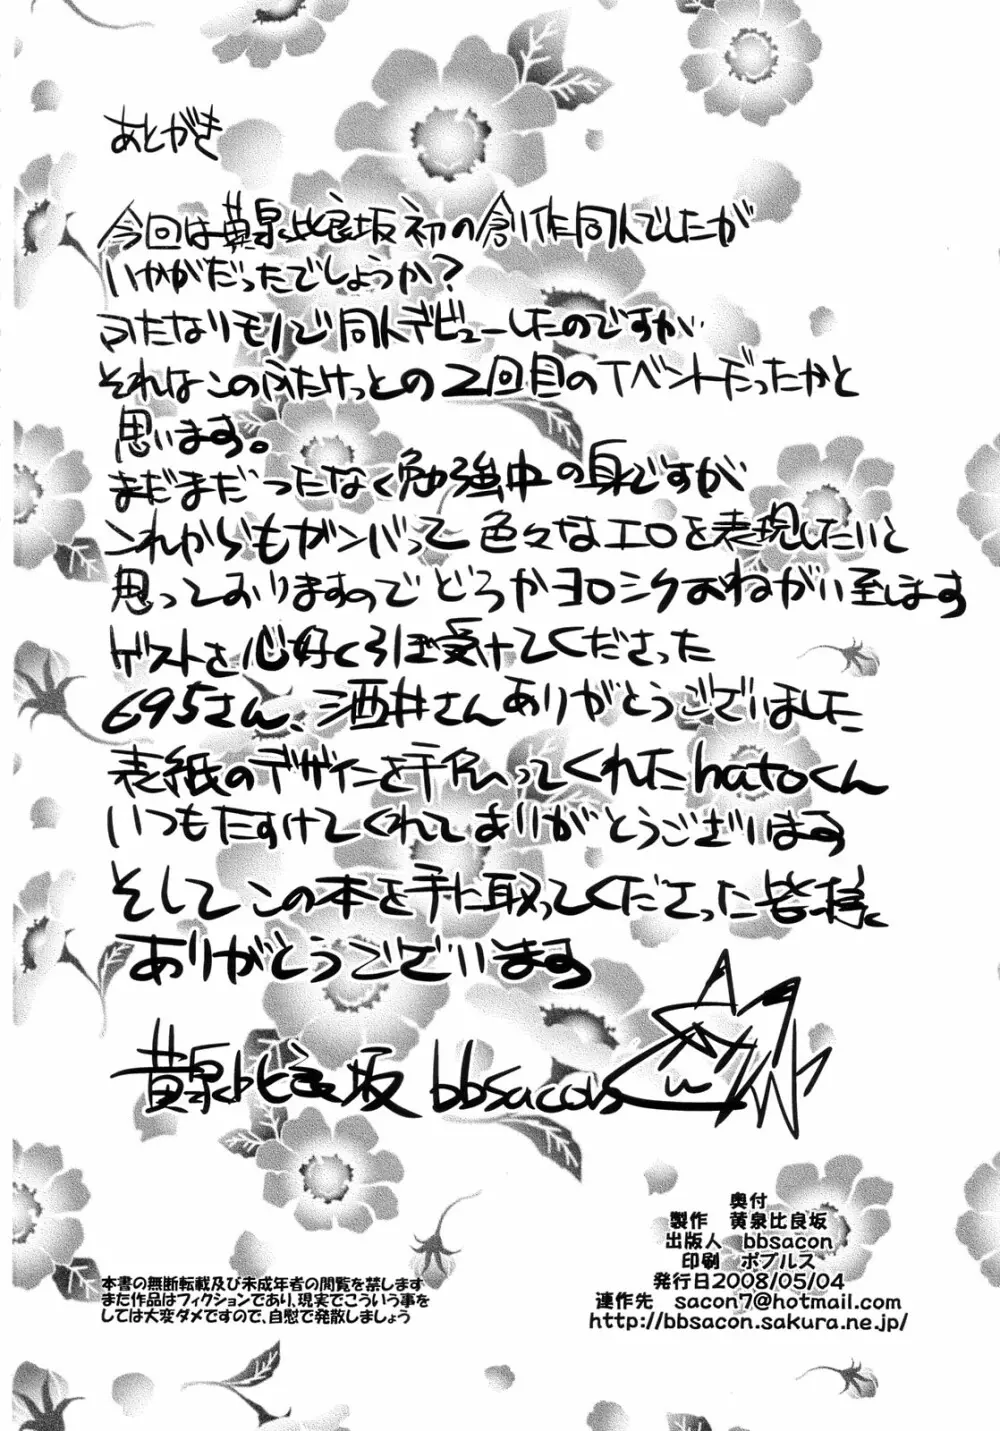 あとがき
今回は黄泉比良坂初の創作同人でしたが
いかがだったでしょうか？
ふたなりモノで同人デビューしたのですが
それはこのふたけっとの2回目のイベントだったかと
思います。
まだまだつたなく勉強中の身ですが
これからもガンバって色々なエロを表現したいと
思っておりますのでどうかヨロシクおねがい致します
ゲストを心好くひき受けてくださった
695さん、酒井さんありがとうございました
表紙のデザインを手伝ってくれたhatoくん
いつもたすけてくれてありがとうございます
そしてこの本を手に取ってくださった皆様
ありがとうございます
黄泉比良坂 bbsacon
奥付
製作　黄泉比良坂
出版人　bbsacon
印刷　ポプルス
発行日2008/05/04
連作先　sacon7@hotmail.com
http://bbsacon.sakura.ne.jp/
本書の無断転載及び未成年者の閲覧を禁します
また作品はフィクションであり、現実でこういう事を
しては大変ダメですので、自慰で発散しましょう